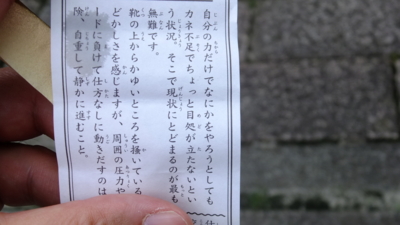 自分の力だけでなにかをやろうとしても
カネ不足でちょっと目処が立たないとい
う状況。そこで現状にとどまるのが最も
無難です。
靴の上からかゆいところを掻いている
どかしさを感じますが、周囲の圧力や
ードに負けて仕方なしに動きだすのは
険、自重して静かに進むこと。